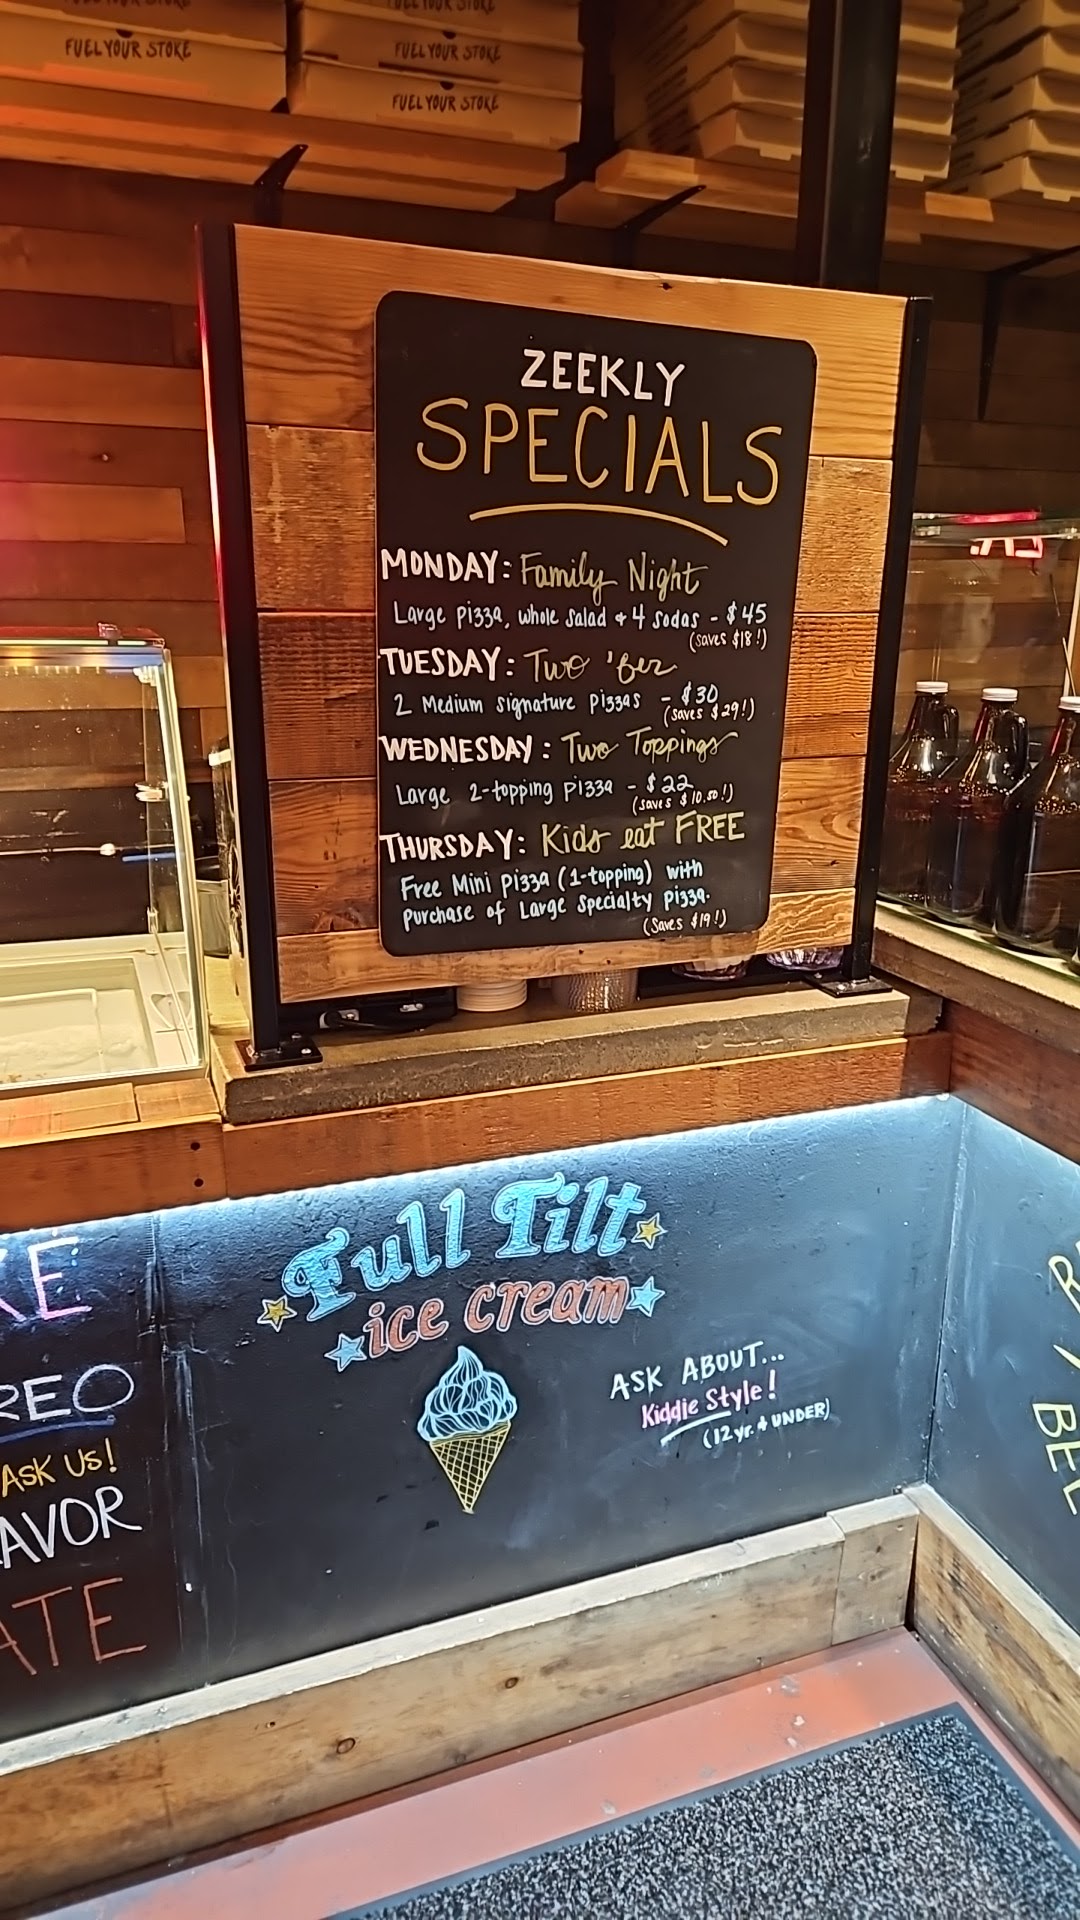 FUEL YOUR STOKE
FUEL YOUR STOKE
FUEL YOUR STOKE
FUEL YOUR STOKE
FUEL YOUR STOKE
ZEEKLY
SPECIALS
MONDAY: Family Night
Large pizza, whole salad + 4 sodas - $45
(saves $18!)
TUESDAY: Two 'fer
2 Medium signature pizzas - $30
(saves $29!)
WEDNESDAY: Two Toppings
Large 2-topping pizza - $22
(saves $10.50!)
THURSDAY: Kids eat FREE
Free Mini pizza (1-topping) with
purchase of Large specialty pizza.
(Saves $19!)
Full Tilt
ice cream
ASK ABOUT...
Kiddie Style!
(12 yr. & UNDER)
KE
REO
ASK US!
AVOR
ATE
BEL